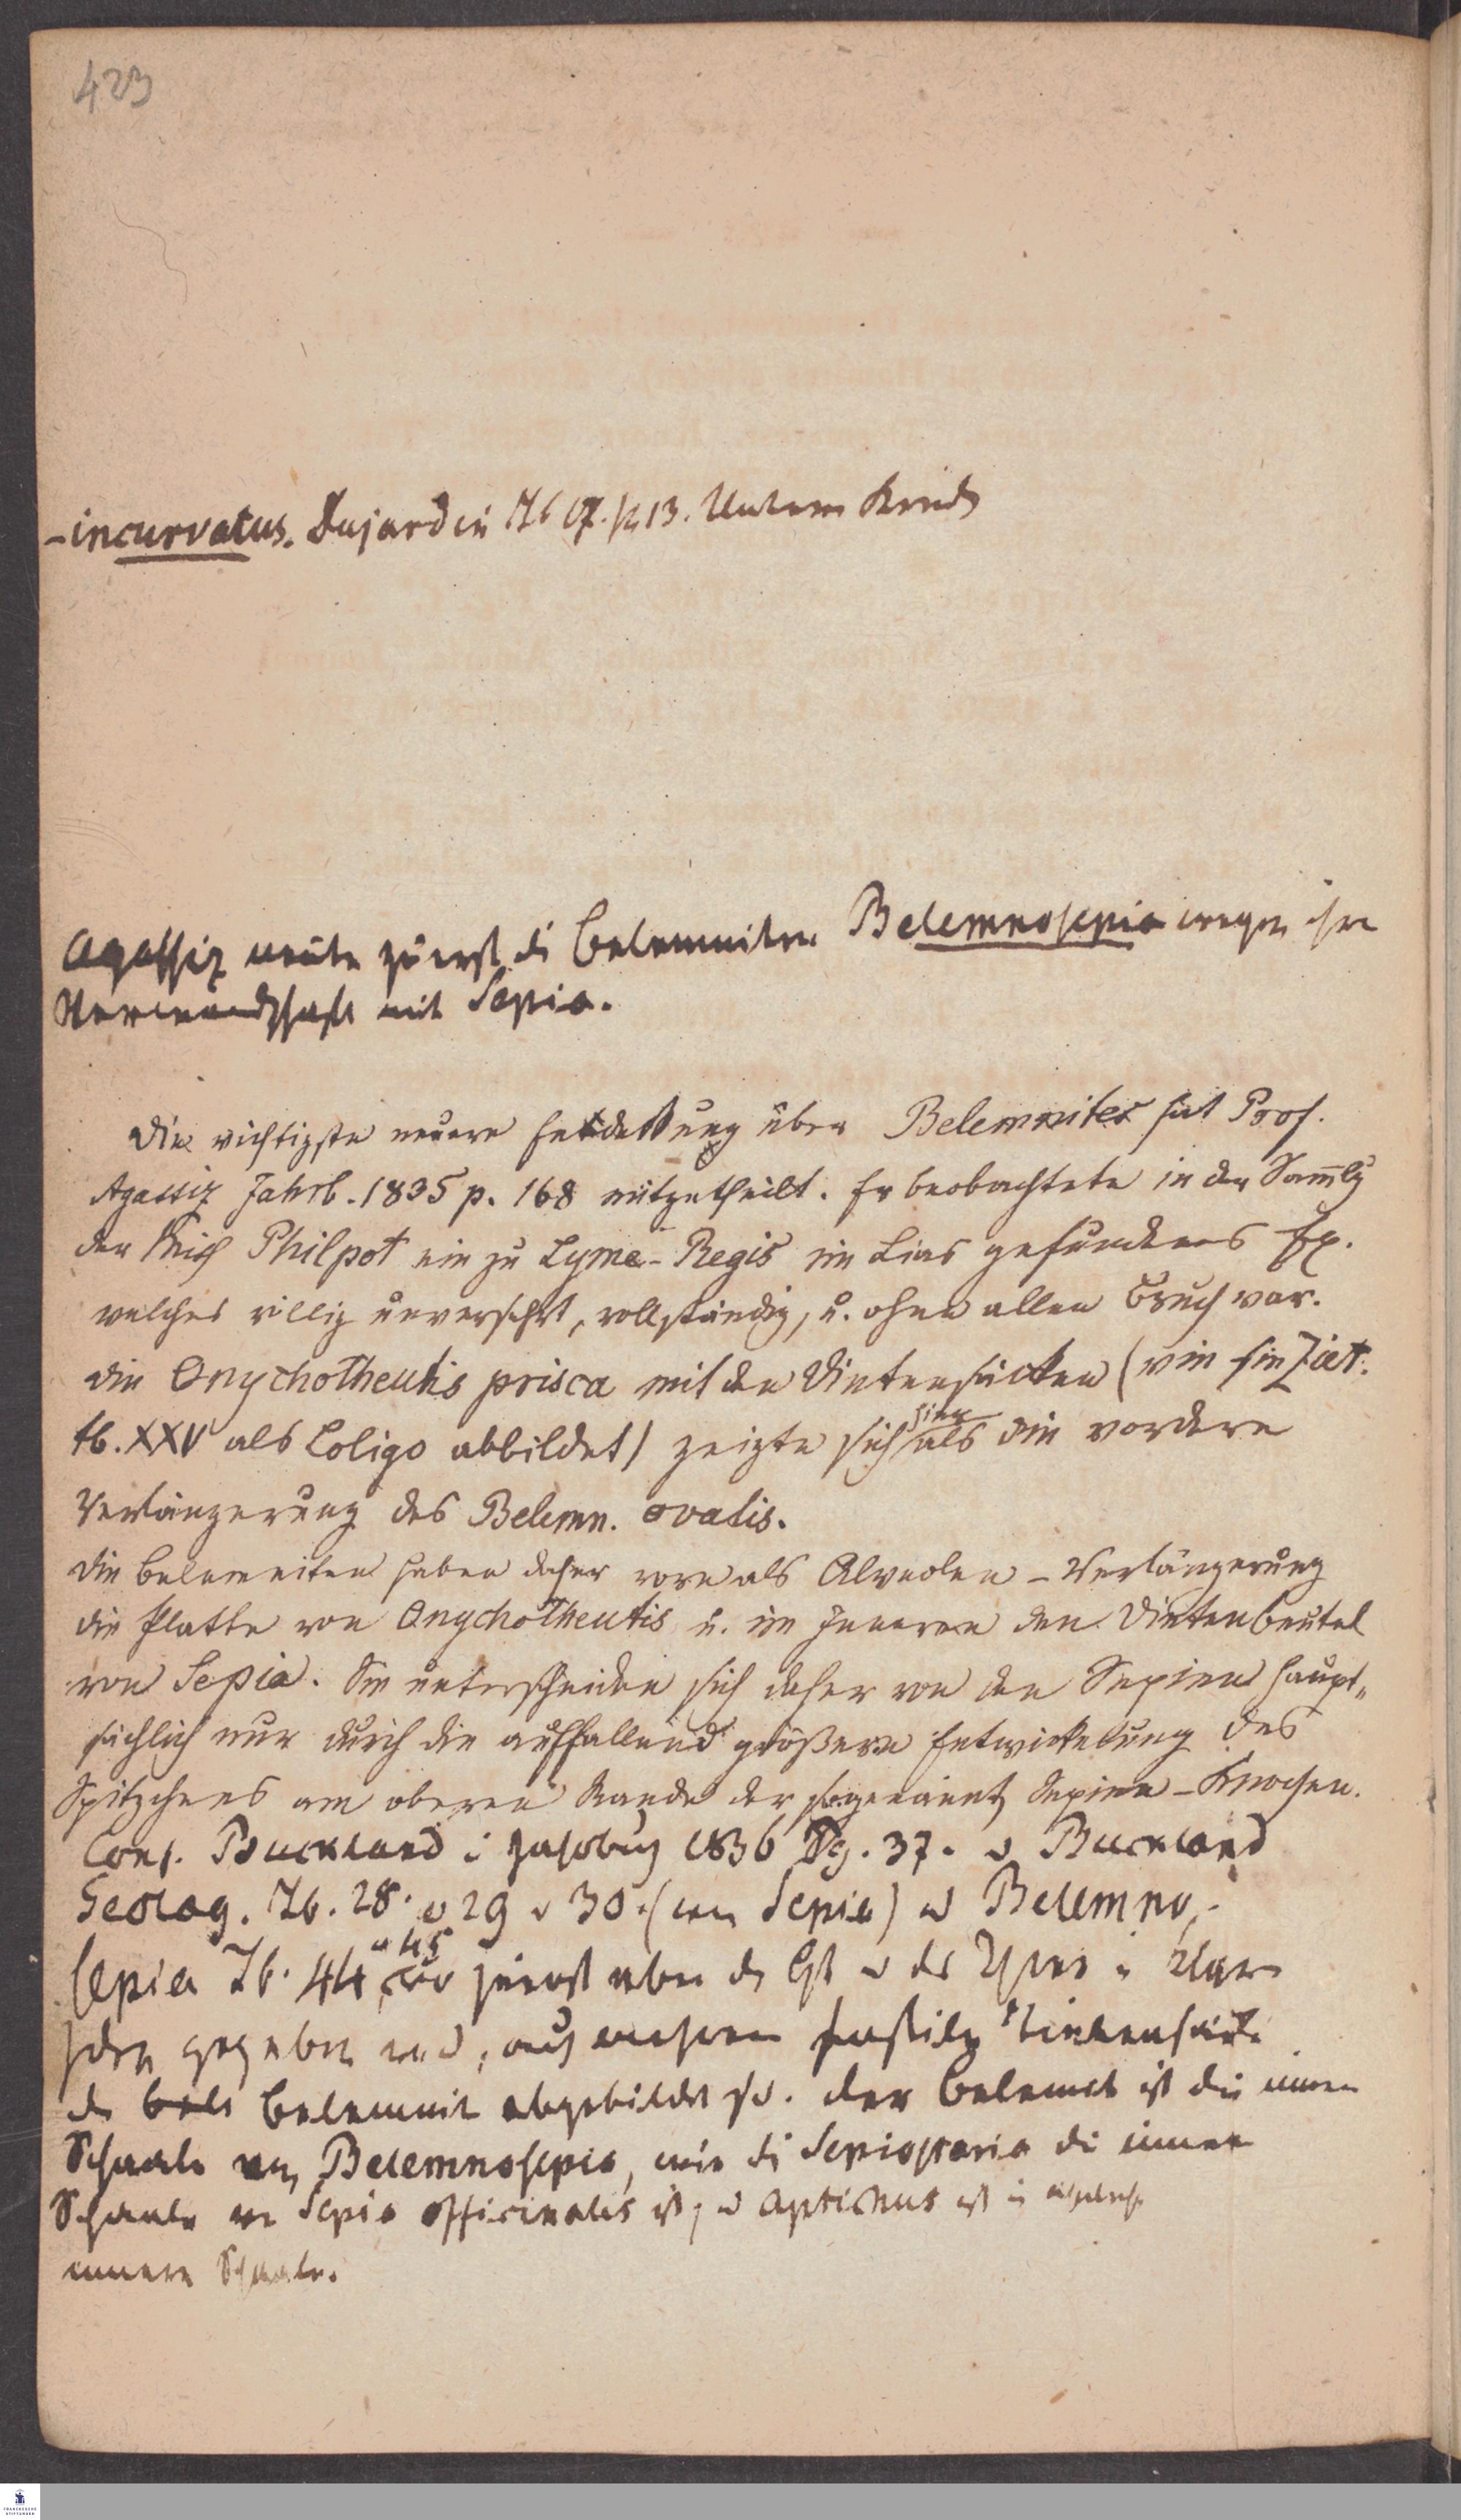 423
- incurvatus. Dujardin Tb 17. f. 13. Untere Kreide
Agassiz nennte zuerst die Belemniten Belemnosepia wegen ihrer
Verwandschaft mit Sepia.
Die wichtigste neuere Entdekkung über Belemniten hat Prof.
Agassiz Jahrb. 1835 p. 168 mitgetheilt. Er beobachtete in der Samlg
der Miß Philpot ein zu Lyme-Regis im Lias gefundenes Ex.
welches völlig unversehrt, vollständig, u. ohne allen Bruch war.
die Onychotheutis prisca mit den Dintensäcken (wie sie Ziet.
tb. XXV als Loligo abbildet) zeigte sich hier als die vordere
Verlängerung des Belemn. ovalis.
Die Belemniten haben daher vorn als Alveolen-Verlängerung
die Platte von Onychotheutis u. im Inneren den Dintenbeutel
von Sepia. Sie unterscheiden sich daher von den Sepien haupt„
sächlich nur durch die auffallend größere Entwickelung des
Spitzchens am oberen Rande der sogenannt. Sepien-Knochen.
Conf. Buckland i Jahrbuch 1836 Pg. 37. u Buckland
Geolog. Tb. 28. u 29 u 30. (von Sepia) u Belemno-
sepia Tb. 44 u 45 zuerst über
gegeben wird, auch mehrere fossile Tintensäcke
der bele Belemnit abgebildet sd. der Belemnit ist die innere
Schaale von Belemnosepia, wie die Sepiostaria die innere
Schaale von Sepia officinalis ist, u Aptichus ist
innere Schaale.
FRANCKESCHE
STIFTUNGEN